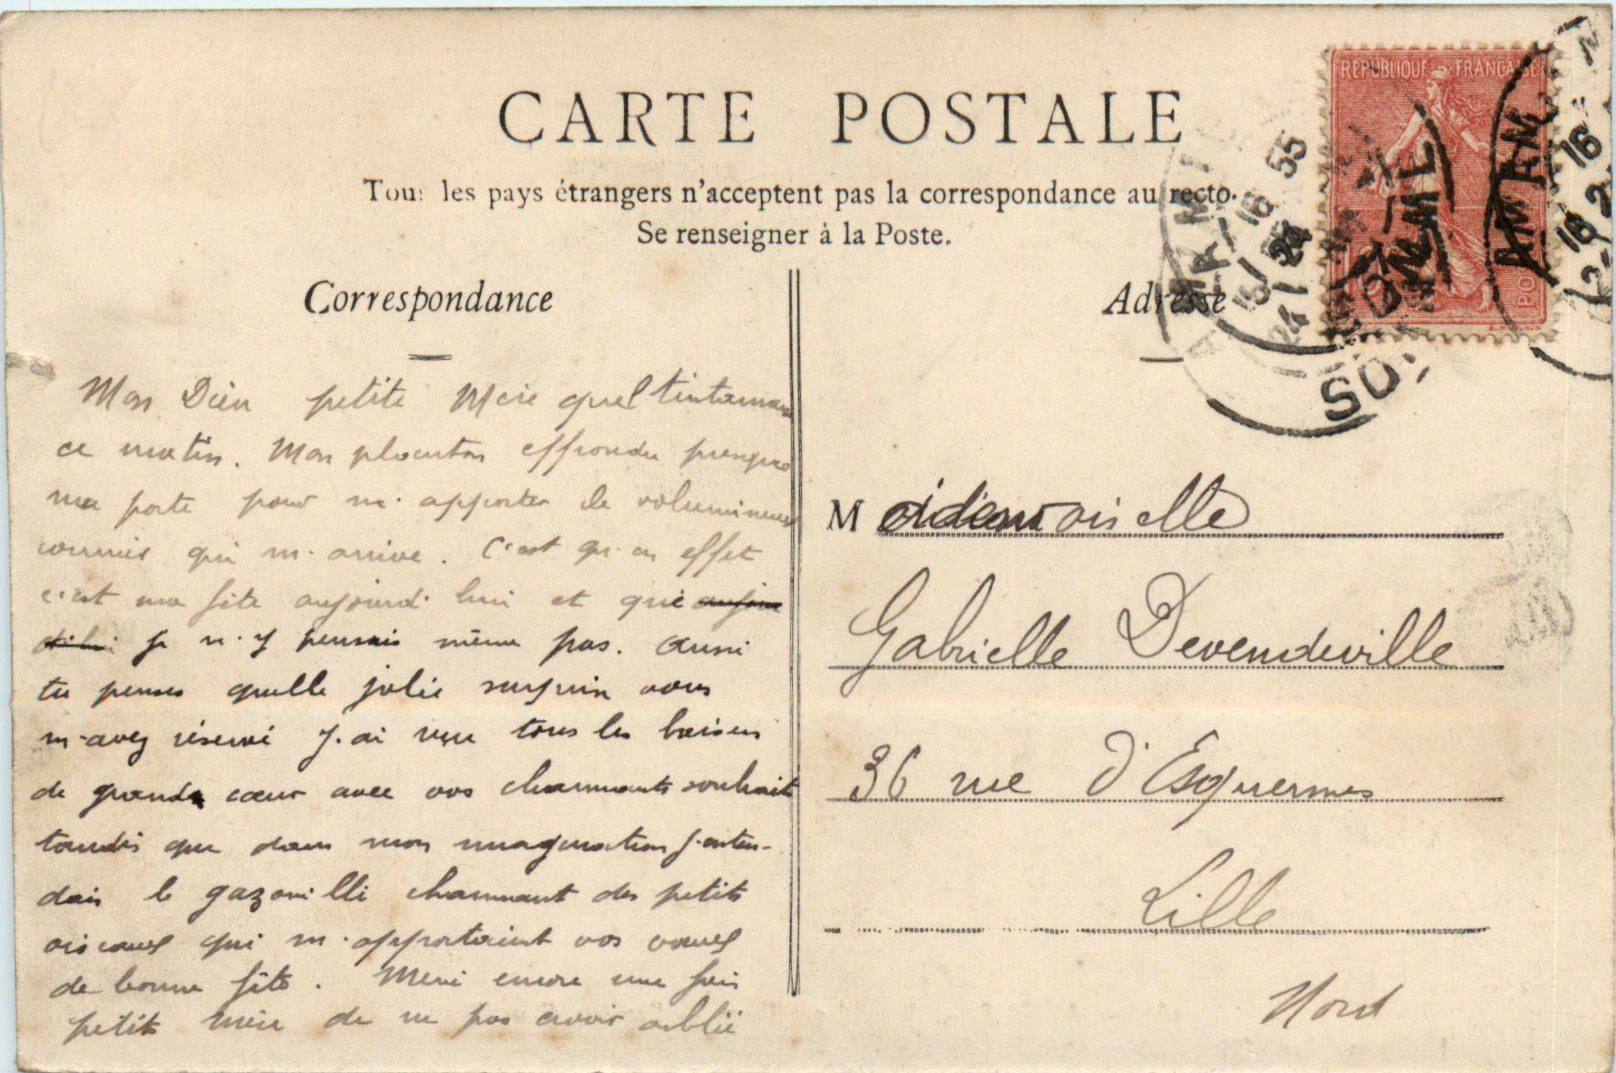 CARTE POSTALE
Tous les pays étrangers n'acceptent pas la correspondance au recto.
Se renseigner à la Poste.
Correspondance
Adresse
REPUBLIQUE FRANÇAISE
Mon Dieu petite Mère quel tintamarre
ce matin. Mon planton effondra presque
ma porte pour m'apporter le volumineux
courrier qui m'arrive. C'est qu'en effet
c'est ma fête aujourd'hui et que
je n'y pensais même pas. Aussi
tu penses quelle jolie surprise vous
m'avez réservé J'ai reçu tous les baisers
de grands cœur avec vos charmants souhaits
tandis que dans mon imagination j'enten-
dais le gazouilli charmant des petits
oiseaux qui m'apportaient vos vœux
de bonne fête. Merci encore une fois
petite mère de ne pas avoir oublié
Mademoiselle
Gabrielle Devendeville
36 rue d'Esquermes
Lille
Nord
SOMME